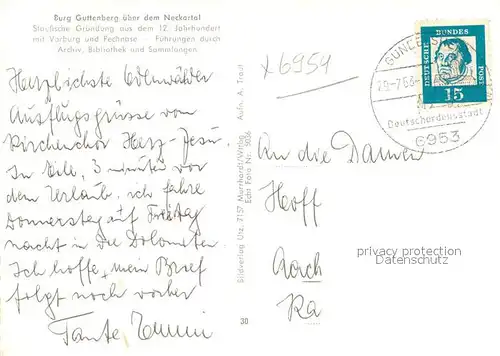 Burg Guttenberg über dem Neckartal
Staufische Gründung aus dem 12. Jahrhundert
mit Vorburg und Fechnase - Führungen durch
Archiv, Bibliothek und Sammlungen
Herzlichste Odenwälder
Ausflugsgrüsse vom
Kirchenchor Herz-Jesu.
In Eile, 3 Minuten vor
dem Urlaub. ich fahre
Donnerstag auf Freitag
nacht in die Dolomiten.
Ich hoffe, mein Brief
folgt noch vorher
Tante
Bildverlag Utz, 7157 Murrhardt/Wttbg.
Echt Foto Nr. 5036
Aufn. A. Traut
30
x6954
DEUTSCHE BUNDES POST
15
29-7.63
Deutschordensstadt
6953
An die Damen
Hoff
privacy protection
Datenschutz